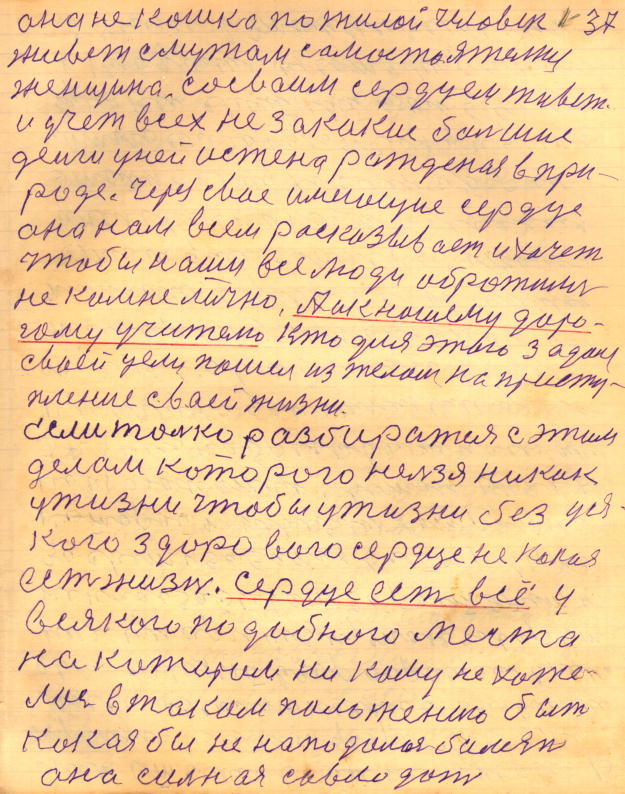 она не кошка пожилой человек 37
живет с мужам самостоятелну
женщина. со сваим сердцем живет.
и учет всех не за какие болшие
денги у ней истена ражденая в при-
роде. Через свае имеющие сердце
она нам всем расказывает и хочет
чтобы наши все люди обротилис
не ко мне лично, А к нашему доро-
гому учителю кто для этого задал
своей цели пошел из телом на присту-
пление своей жизни.
Если толко разбиратся с этим
делам которого нелзя никак
у жизни чтобы у жизни без уся-
кого здоро вого сердце не какая
ест жизн. Сердце ест всё у
всякого подобного места
на котором ни кому не хоте-
лос в таком положению быт
кокая бы не наподала болязн
она силная совлодат